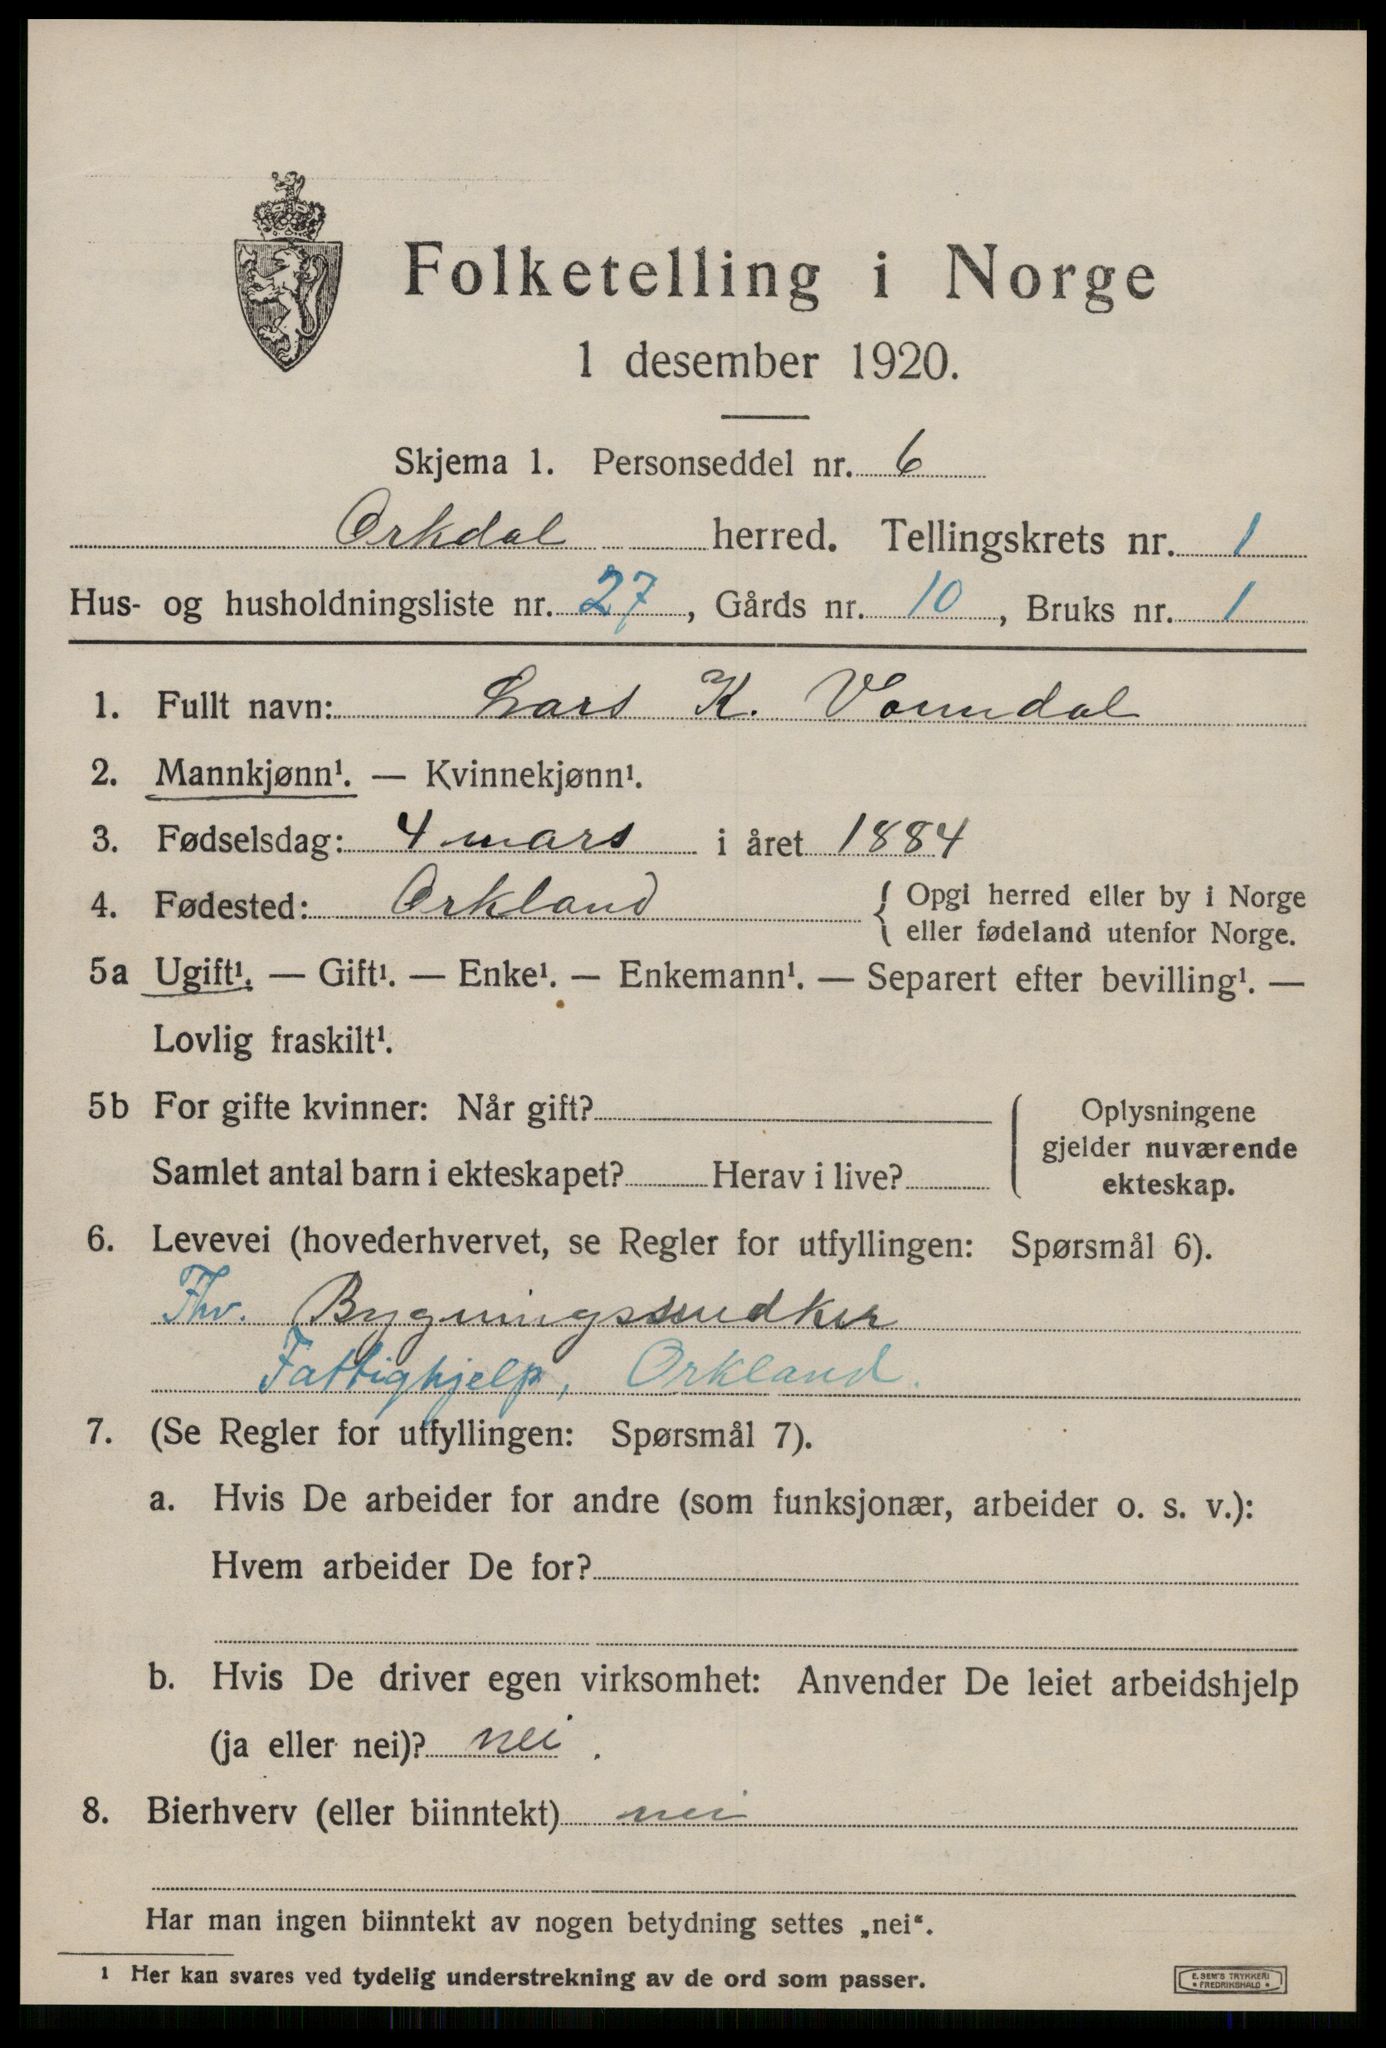 Folketelling i Norge
1 desember 1920.
Skjema 1. Personseddel nr. 6
Orkdal herred. Tellingskrets nr. 1
Hus- og husholdningsliste nr. 27, Gårds nr. 10, Bruks nr. 1
1. Fullt navn: Lars K. Vormdal
2. Mannkjønn¹. — Kvinnekjønn¹.
3. Fødselsdag: 4 mars i året 1884
4. Fødested: Orkland { Opgi herred eller by i Norge
eller fødeland utenfor Norge.
5a Ugift¹. — Gift¹. — Enke¹. — Enkemann¹. — Separert efter bevilling¹. —
Lovlig fraskilt¹.
5b For gifte kvinner: Når gift?
Samlet antal barn i ekteskapet? Herav i live?
Oplysningene
gjelder nuværende
ekteskap.
6. Levevei (hovederhvervet, se Regler for utfyllingen: Spørsmål 6).
Fhv. Bygningssnedker
Fattighjelp, Orkland.
7. (Se Regler for utfyllingen: Spørsmål 7).
a. Hvis De arbeider for andre (som funksjonær, arbeider o. s. v.):
Hvem arbeider De for?
b. Hvis De driver egen virksomhet: Anvender De leiet arbeidshjelp
(ja eller nei)? nei.
8. Bierhverv (eller biinntekt) nei
Har man ingen biinntekt av nogen betydning settes „nei“.
1 Her kan svares ved tydelig understrekning av de ord som passer.
E. SEM'S TRYKKERI
• FREDRIKSHALD •